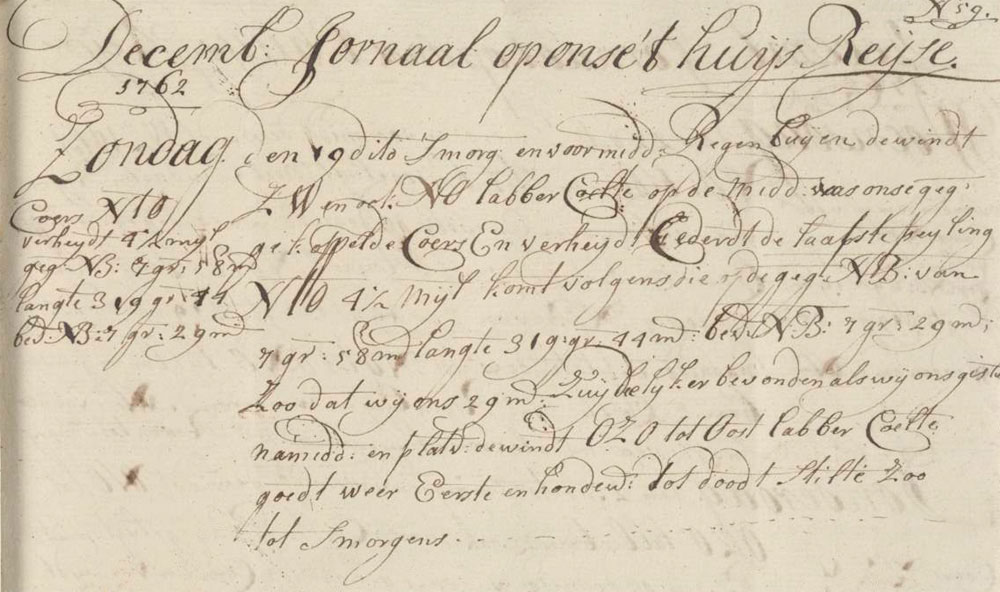 N 59.
Decemb: Jornaal op onse't huijs Reijse.
1762
Zondag den 19 dito Smorg en voormidd: Regen buijen de windt
Coers NtO
verheijdt 4½ mijl
geg NB: 7 gr: 58 md
langte 319 gr 44
bed: NB: 7 gr: 29 md
ZW en ock NO labber Coelte op de midd: was onse geg:
gekoppelde Coers En verheijdt Zederdt de laaste peijling
NtO 4½ Mijl komt volgens die op de geg: NB: van
7 gr: 58 md langte 319: gr: 44 md: bed: N:B: 7 gr: 29 md:
Zoo dat wij ons 29 md: Zuijdelijker bevonden als wij ons gist
namidd: en platv: de windt OZO tot Oost labber Coelte
goedt weer Eerste en hondew: tot doodt Stilte Zoo
tot Smorgens